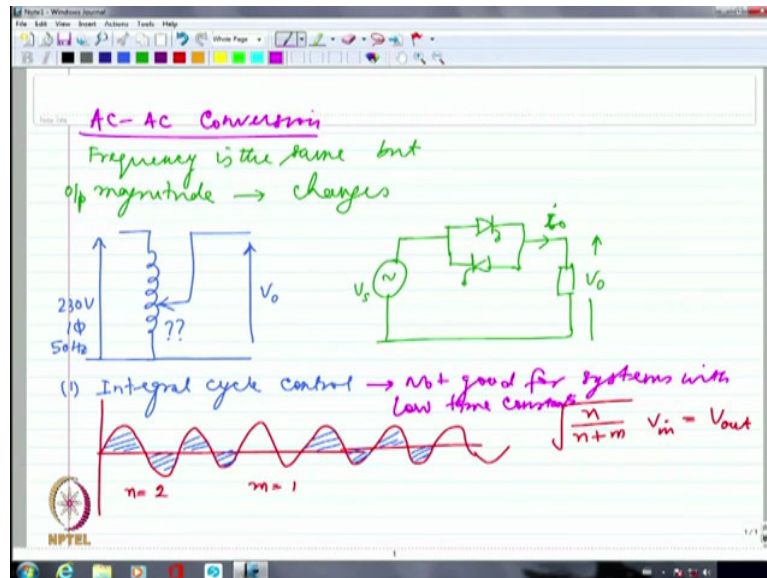 Note1 - Windows Journal
File Edit View Insert Actions Tools Help
Whole Page
B I
Note Title
AC-AC Conversion
Frequency is the same but
o/p magnitude → changes
230V
1Φ
50Hz
??
Vo
Vs
~
io
Vo
(1) Integral cycle control → Not good for systems with
low time constants
n = 2
m = 1
√(n/(n+m)) Vin = Vout
NPTEL
1/1
1